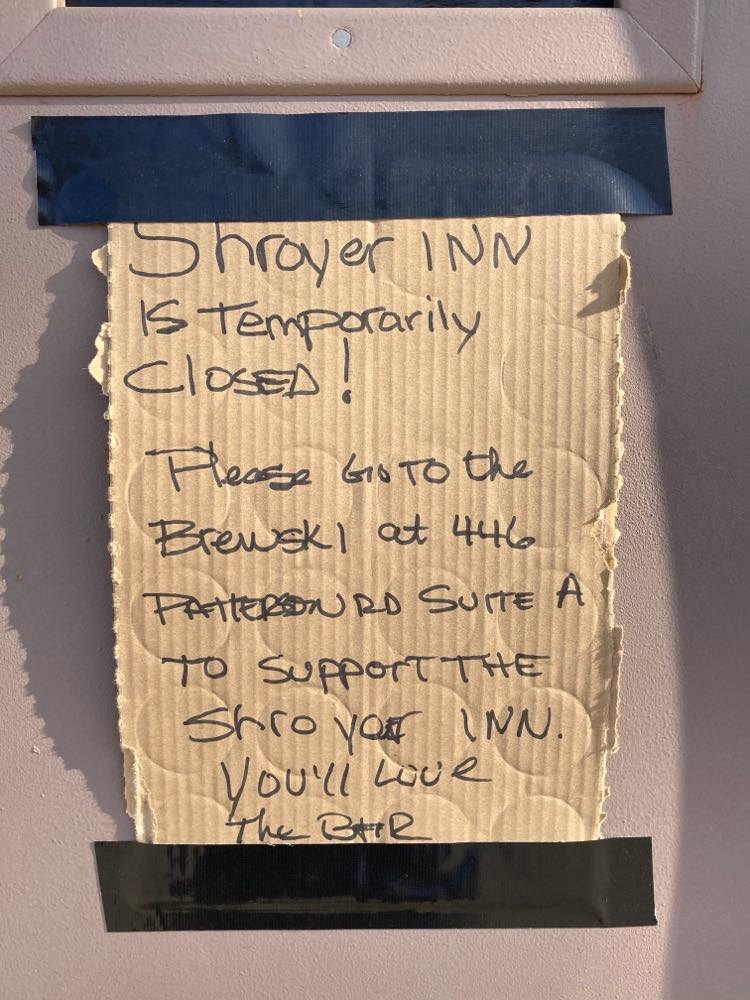 Shroyer INN
IS Temporarily
CLOSED!
Please Go TO the
BrewskI at 446
PATTERSON RD SUITE A
TO SUPPORT THE
Shroyer INN.
YOU'll LOVE
The BAR